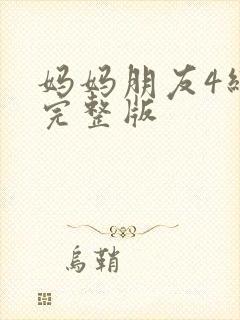 妈妈朋友4
完整版
乌鞘